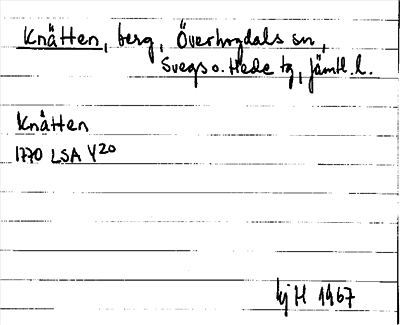 Knåtten, berg, Överhogdals sn,
Svegs o. Hede tg, Jämtl. l.
Knåtten
1770 LSA Y20
hj H 1967